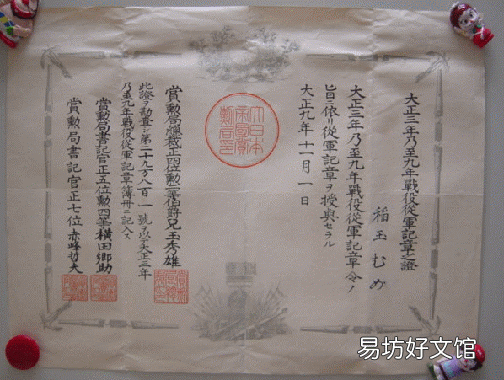 大正三年乃至九年戦役従軍記章之證
稲玉むめ
大正三年乃至九年戦役従軍記章令ノ
旨ニ依リ従軍記章ヲ授與セラル
大正九年十一月一日
大日本帝國賞勲局印
賞勲局總裁正四位勲二等伯爵兒玉秀雄
此證ヲ勘査シ第二十九万八百一號ヲ以テ大正三年
乃至九年戦役従軍記章簿冊ニ記入ス
賞勲局書記官正五位勲四等横田郷助
賞勲局書記官正七位赤峰哲夫
易坊好文馆